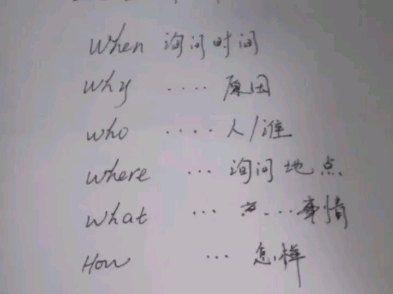 when 询问时间
why .... 原因
who .... 人/谁
where ... 询问地点
what ... ... 事情
How ... 怎样